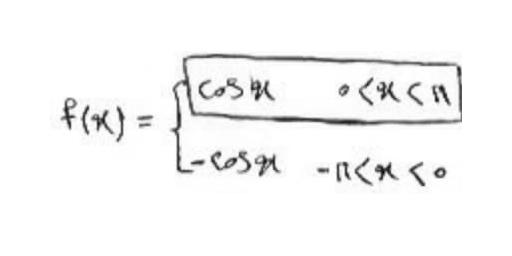 f(x) = { cos x   0 < x < π
-cos x   -π < x < 0